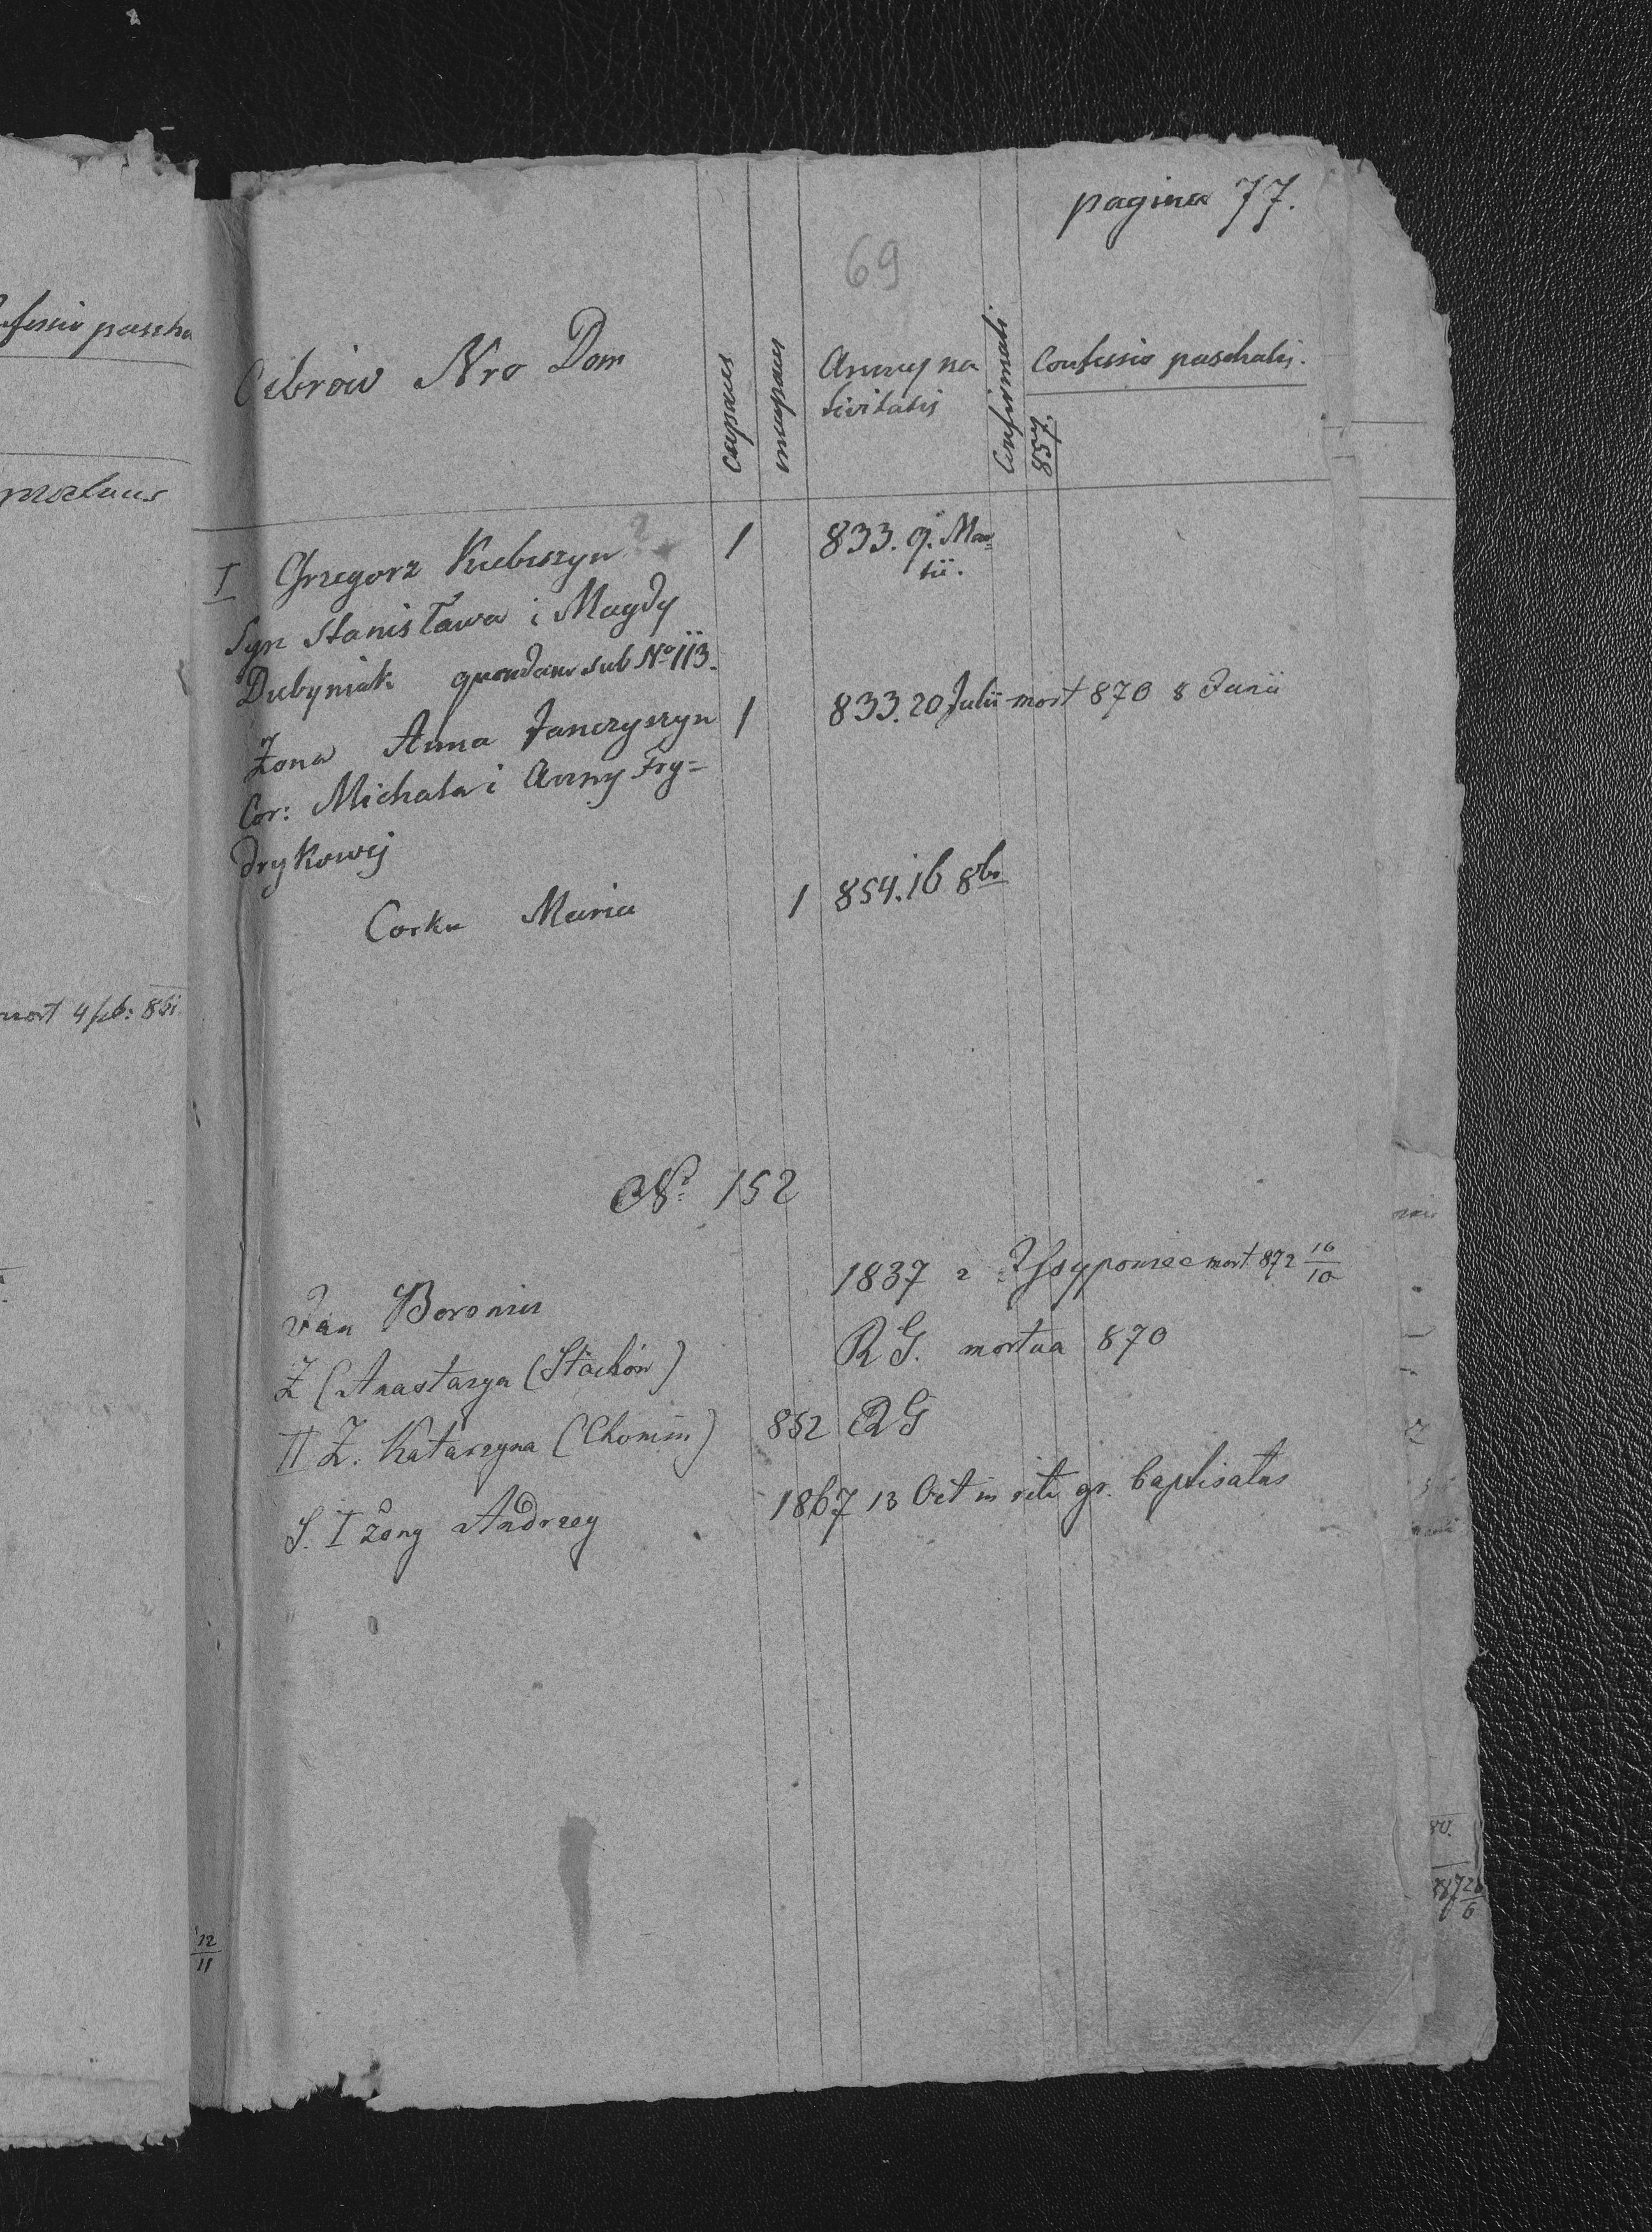 fessio pascha
mort 4 feb: 861.
12
11
pagina 77.
69
Cebrów Nro Dom
capaces
incapaces
Annus na
tivitatis
Confirmati
Confessio paschalis.
857.
I Grzegorz Kubiszyn ? 1 833. 9. Mar=
tii.
Syn Stanisława i Magdy
Dubyniak quondam sub No 113.
Żona Anna Janczyszyn 1 833. 20 Julii mort 870 8 Junii
Cor: Michała i Anny Fry=
drykowej
Corka Maria 1 854. 16 8br
No 152
Jan Boroniu 1837 mort. 872 16/10
Ż (Anastazya (Stachón) R G. mortua 870
II Ż. Katarzyna (Chomin) 852 R G
S. I żony Andrzey 1867 13 Oct in ritu gr. baptisatus